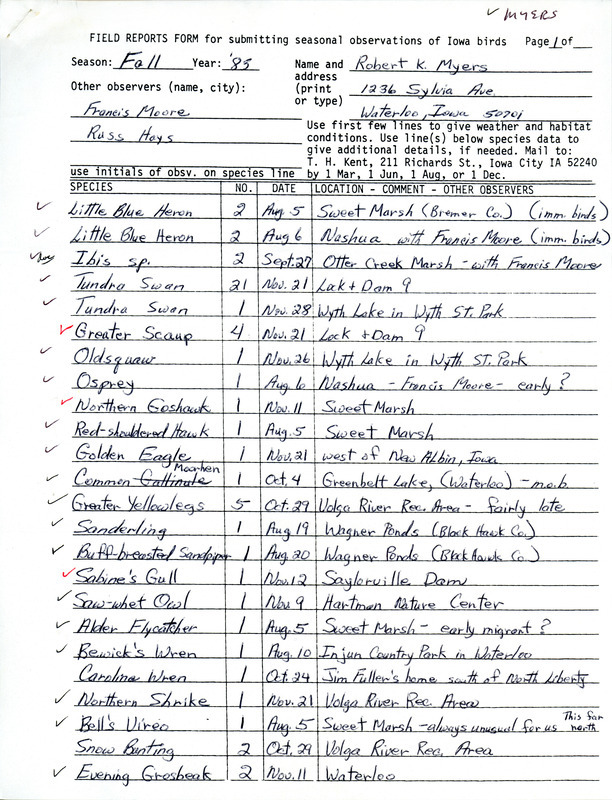 ✓ MYERS
FIELD REPORTS FORM for submitting seasonal observations of Iowa birds Page 1 of
Season: Fall Year: '85 Name and Robert K. Myers
address
Other observers (name, city): (print 1236 Sylvia Ave
or type)
Francis Moore Waterloo, Iowa 50701
Russ Hays Use first few lines to give weather and habitat
conditions. Use line(s) below species data to
give additional details, if needed. Mail to:
T. H. Kent, 211 Richards St., Iowa City IA 52240
use initials of obsv. on species line by 1 Mar, 1 Jun, 1 Aug, or 1 Dec.
SPECIES NO. DATE LOCATION - COMMENT - OTHER OBSERVERS
✓ Little Blue Heron 2 Aug. 5 Sweet Marsh (Bremer Co.) (imm. birds)
✓ Little Blue Heron 2 Aug 6 Nashua with Francis Moore (imm. birds)
✓ Ibis sp. 2 Sept. 27 Otter Creek Marsh - with Francis Moore
✓ Tundra Swan 21 Nov. 21 Lock + Dam 9
✓ Tundra Swan 1 Nov. 28 Wyth Lake in Wyth ST. Park
✓ Greater Scaup 4 Nov. 21 Lock + Dam 9
✓ Oldsquaw 1 Nov. 26 Wyth Lake in Wyth ST. Park
✓ Osprey 1 Aug. 6 Nashua - Francis Moore - early?
✓ Northern Goshawk 1 Nov. 11 Sweet Marsh
✓ Red-shouldered Hawk 1 Aug. 5 Sweet Marsh
✓ Golden Eagle 1 Nov. 21 west of New Albin, Iowa
✓ Common Gallinule Moorhen 1 Oct. 4 Greenbelt Lake, (Waterloo) - m.o.b.
✓ Greater Yellowlegs 5 Oct. 29 Volga River Rec. Area - fairly late
✓ Sanderling 1 Aug 19 Wagner Ponds (Black Hawk Co.)
✓ Buff-breasted Sandpiper 1 Aug. 20 Wagner Ponds (Black Hawk Co.)
✓ Sabine's Gull 1 Nov. 12 Saylorville Dam
✓ Saw-whet Owl 1 Nov. 9 Hartman Nature Center
✓ Alder Flycatcher 1 Aug. 5 Sweet Marsh - early migrant?
✓ Bewick's Wren 1 Aug. 10 Injun Country Park in Waterloo
Carolina Wren 1 Oct. 24 Jim Fuller's home south of North Liberty
✓ Northern Shrike 1 Nov. 21 Volga River Rec. Area
✓ Bell's Vireo 1 Aug. 5 Sweet Marsh - always unusual for us This far north
Snow Bunting 2 Oct. 29 Volga River Rec. Area
✓ Evening Grosbeak 2 Nov. 11 Waterloo